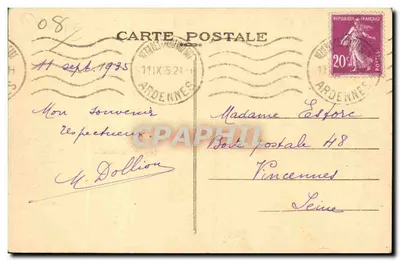 08
CARTE POSTALE
REPUBLIQUE FRANÇAISE
20c
POSTES
11 IX 35 21-H
ARDENNES
11 sept. 1935
Mon souvenir
respectueux
M. Dollion
Madame Esforc
Boite postale 48
Vincennes
Seine
CPAPHIL